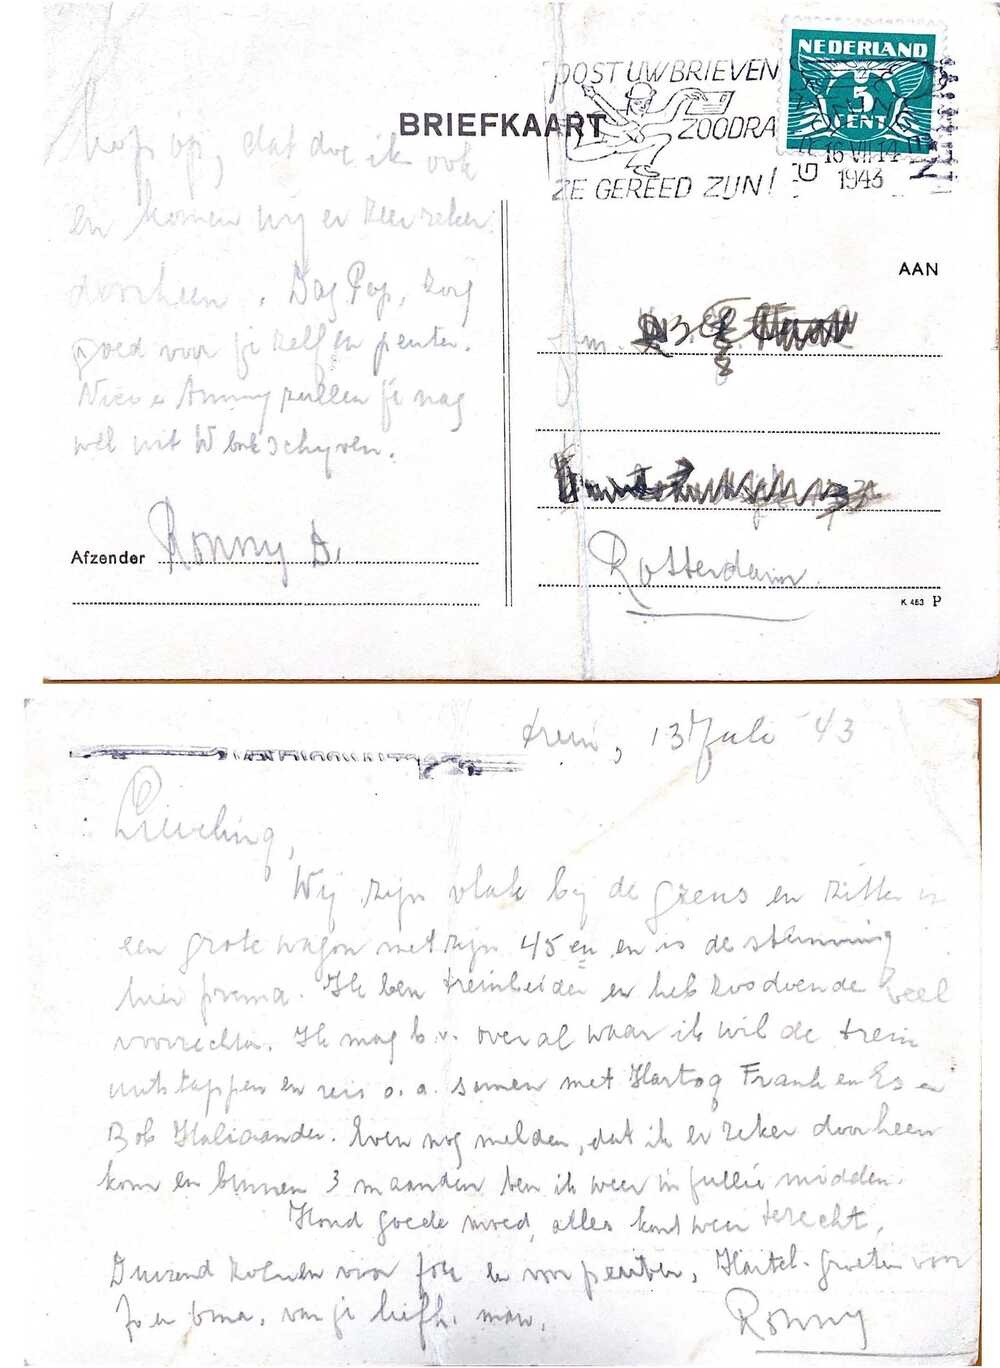 NEDERLAND
5
CENT
POST UW BRIEVEN
ZOODRA
ZE GEREED ZIJN!
16 VII 14
1943
BRIEFKAART
kop op, dat doe ik ook
en komen wij er zeer zeker
doorheen. Dag Pop, zorg
goed voor je zelf en peuter.
Anny zullen je nog
wel uit W
AAN
Rotterdam.
Afzender Ronny D.
K 483 P
trein, 13 Juli '43
Lieveling,
Wij zijn vlak bij de grens en zitten in
een grote wagon met zijn 45 en en is de stemming
hier prima. Ik ben treinleider en heb zoodoende veel
voorrechten. Ik mag b.v. overal waar ik wil de trein
uitstappen en reis o.a. samen met Hartog Frank en Es en
Bob. Even nog melden, dat ik er zeker doorheen
kom en binnen 3 maanden ben ik weer in jullie midden.
Houd goede moed, alles komt weer terecht.
Duizend zoenen voor jou en voor peuter, Hartel. groeten voor
Jo en oma, van je liefh. man,
Ronny